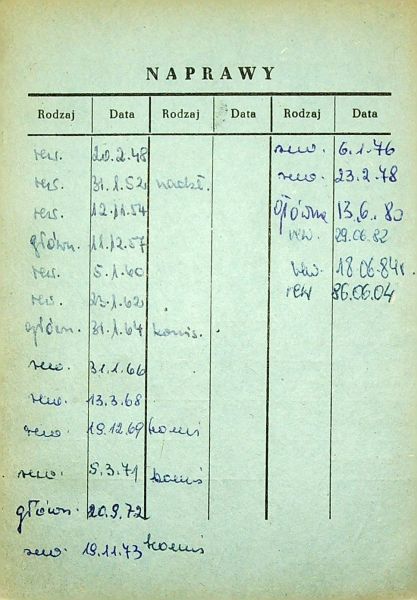 NAPRAWY
Rodzaj Data Rodzaj Data Rodzaj Data
rew. 20.2.48
rew. 31.1.52 nadzł.
rew. 12.11.54
główn. 11.12.57
rew. 5.1.60
rew. 23.1.62
główn. 31.1.64 komis.
rew. 31.1.66
rew. 13.3.68
rew. 19.12.69 komis
rew. 9.3.71 komis
główn. 20.9.72
rew. 19.11.73 komis
rew. 6.1.76
rew. 23.2.78
główna 13.6.80
rew. 29.06.82
rew. 18.06.84r.
rew 86.06.04